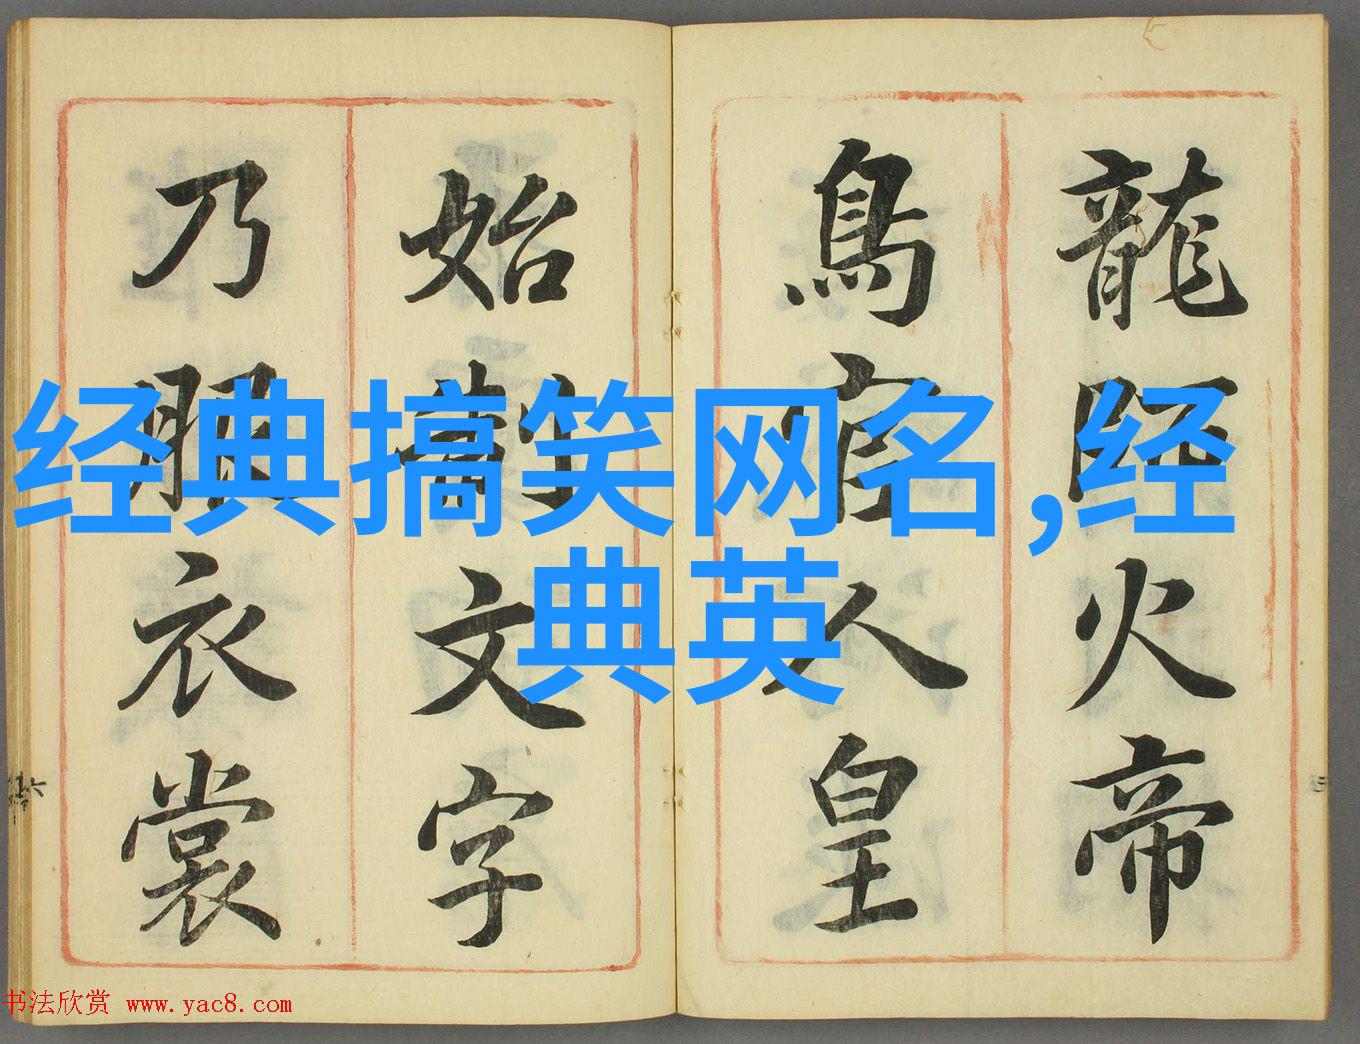 龍師火帝
鳥官人皇
始制文字
乃服衣裳
经典搞笑网名,经
典英
书法欣赏 www.yac8.com